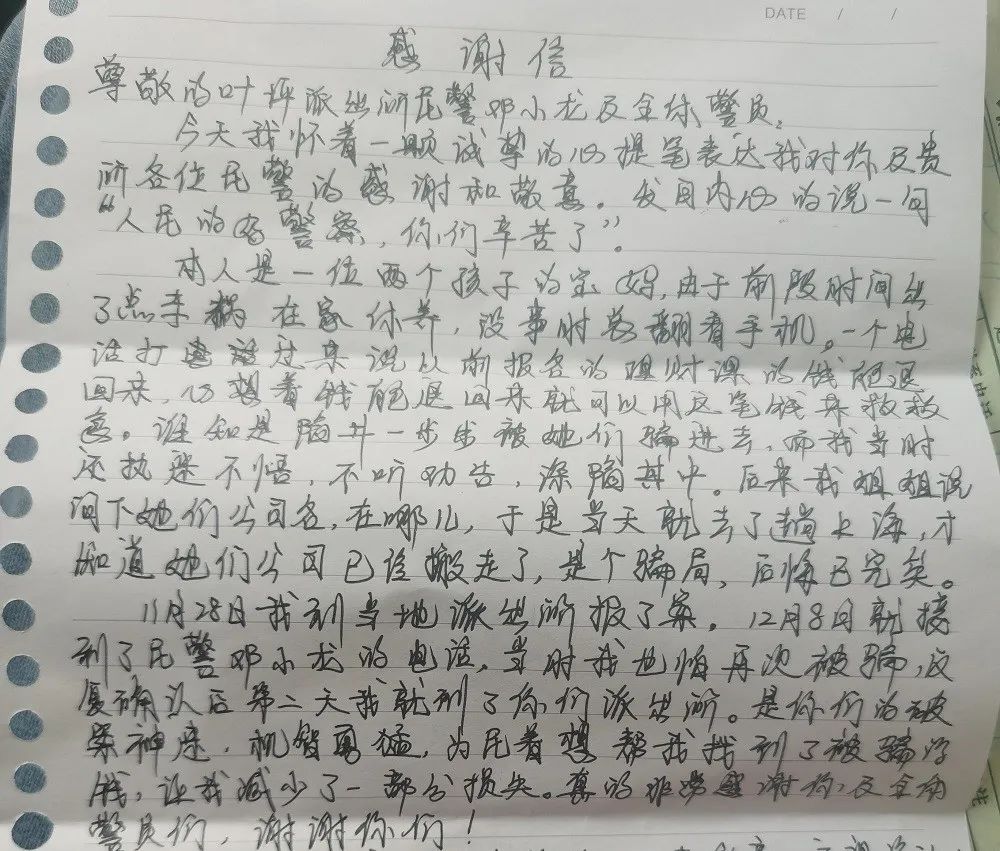 DATE / /
感谢信
尊敬的叶坪派出所民警邓小龙及全体警员。
今天我怀着一颗诚挚的心提笔表达我对你及贵
所各位民警的感谢和敬意。发自内心的说一句
“人民的好警察，你们辛苦了”。
本人是一位两个孩子的宝妈，由于前段时间出
了点车祸在家休养，没事时总翻看手机。一个电
话打过来说以前报名的理财课的钱能退
回来，心想着钱能退回来就可以用这笔钱来救救
急。谁知是陷井一步步被她们骗进去，而我当时
还执迷不悟，不听劝告，深陷其中。后来我姐姐说
问下她们公司名，在哪儿，于是当天就去了趟上海，才
知道她们公司已经搬走了，是个骗局，后悔已完矣。
11月28日我到当地派出所报了案。12月8日就接
到了民警邓小龙的电话，当时我也怕再次被骗，反
复确认后第二天我就到了你们派出所。是你们的破
案神速，机智勇猛，为民着想帮我找到了被骗的
钱，让我减少了一部分损失。真的非常感谢你及全所
警员们，谢谢你们！